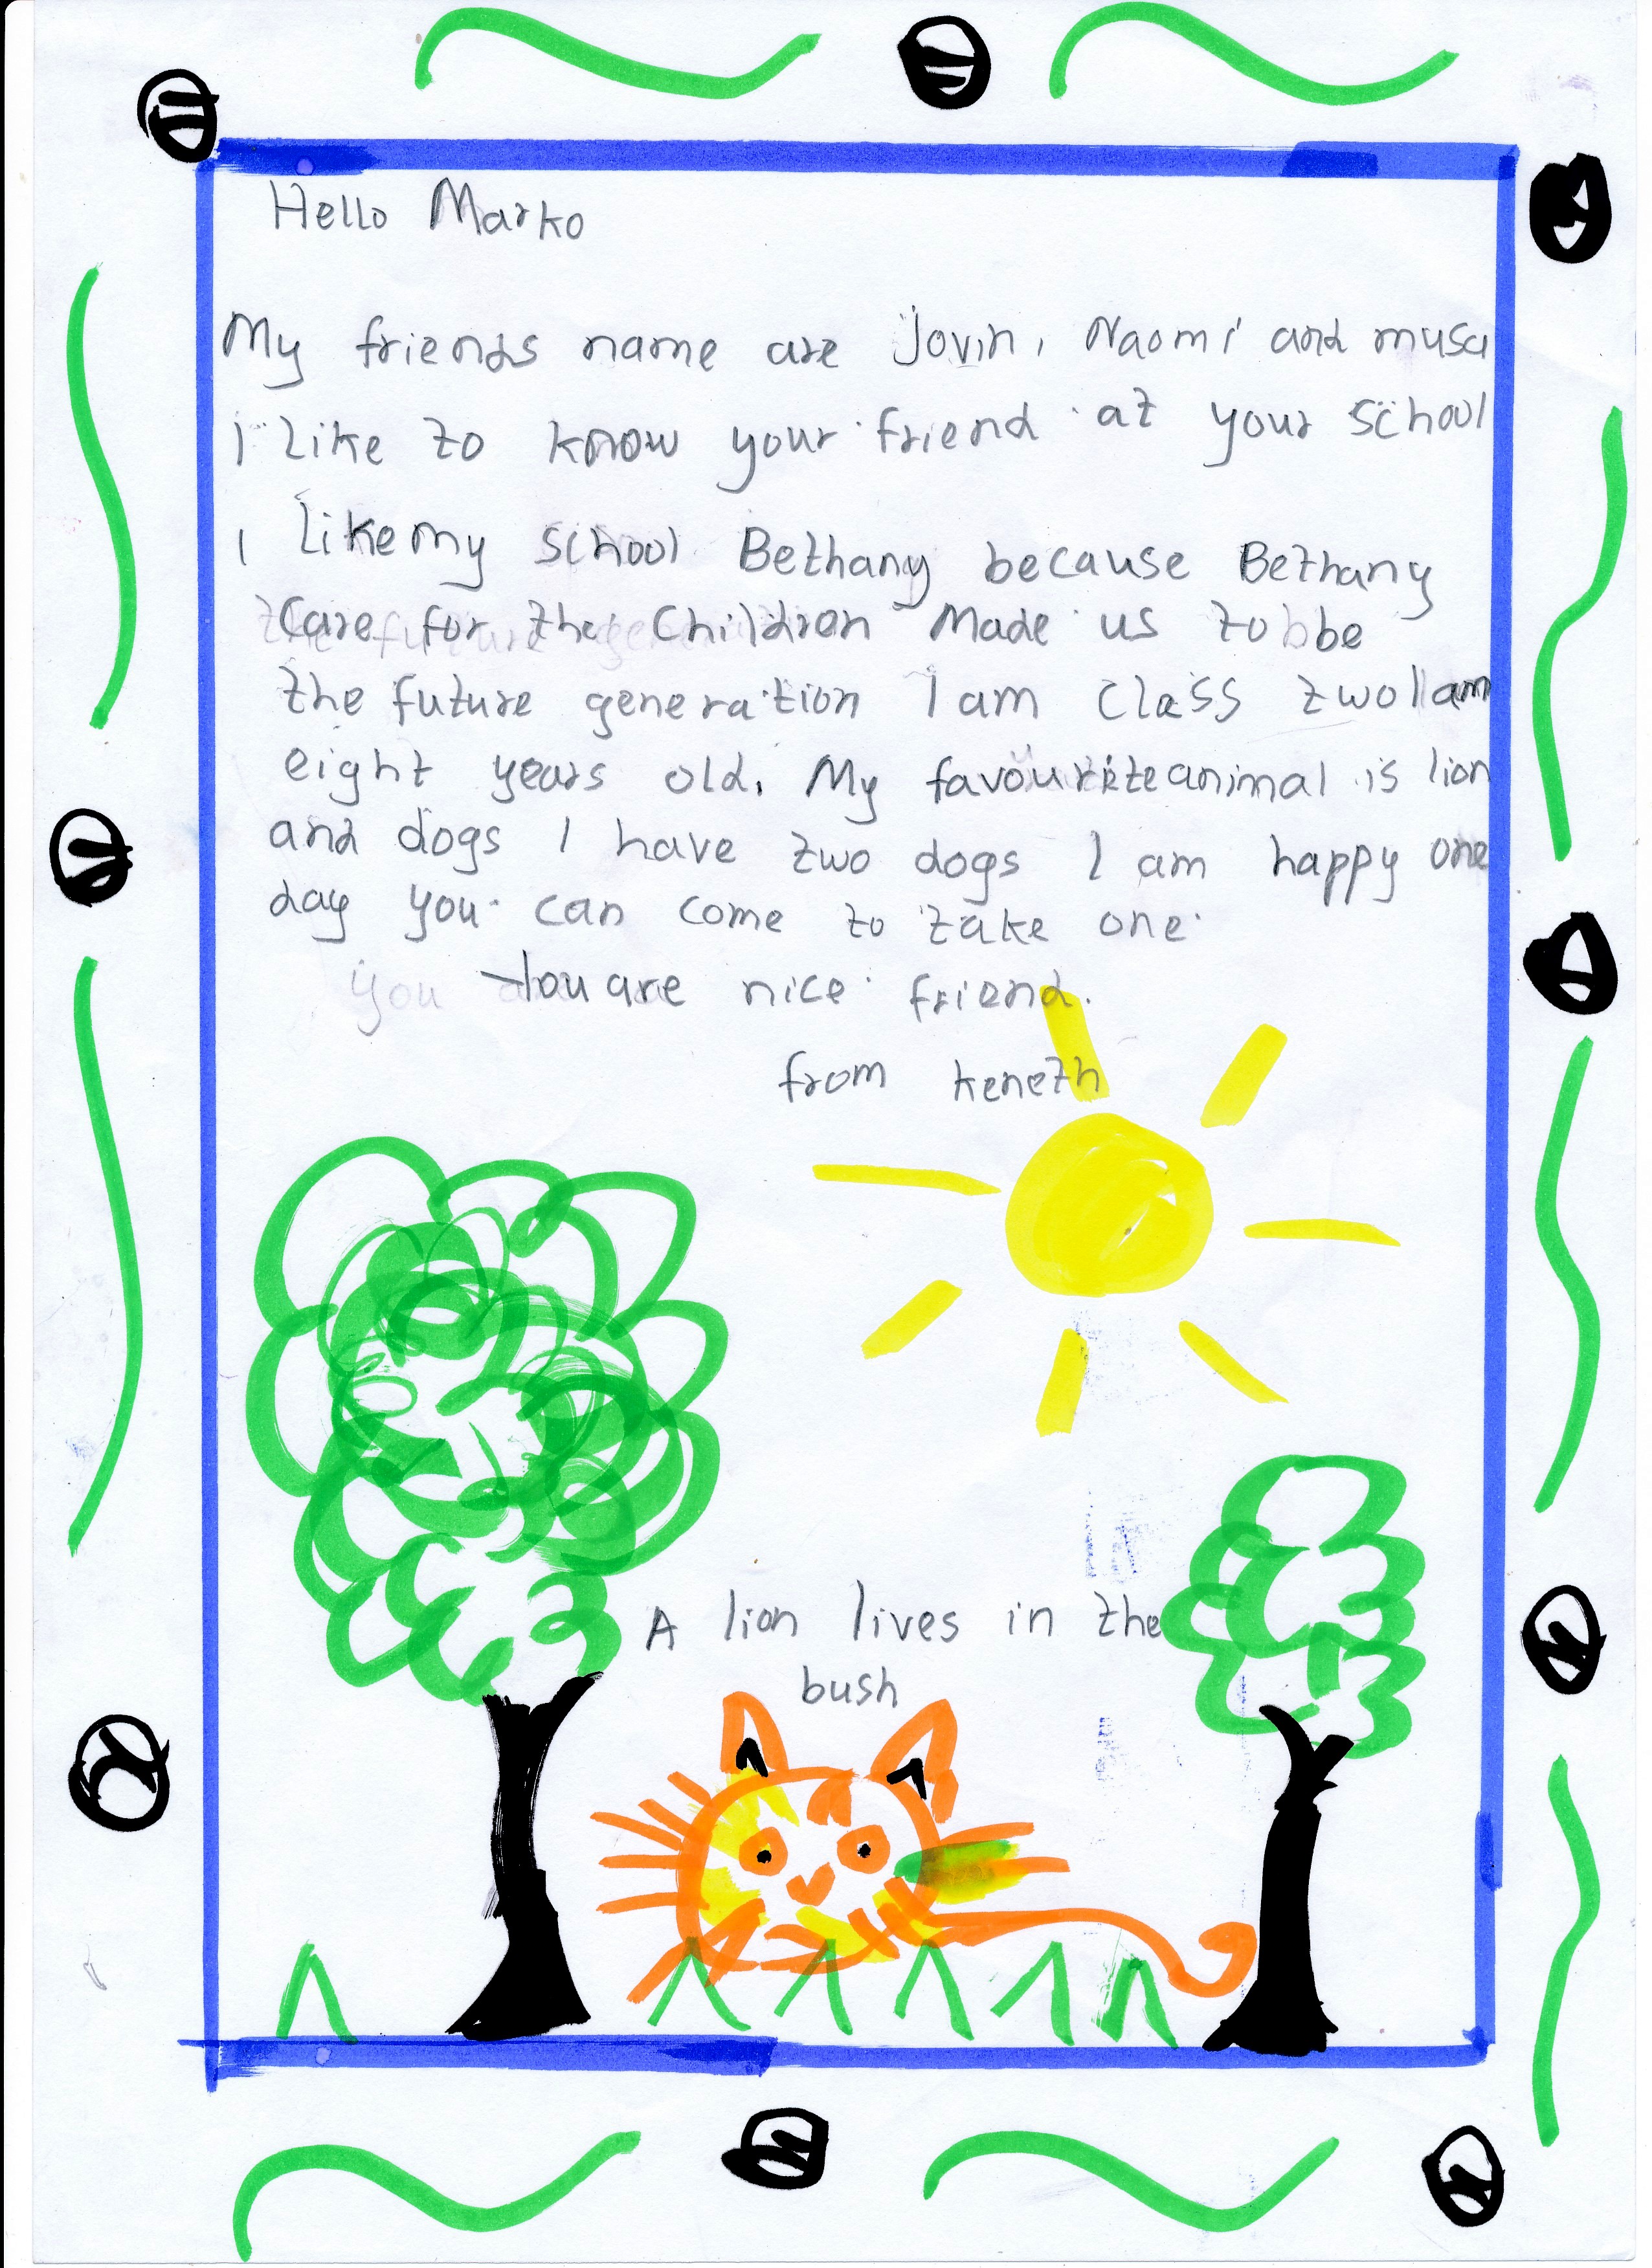 Hello Marko
My friends name are Jovin, Naomi and musa
I like to know your friend at your school
I like my school Bethany because Bethany
Care for the Children Made us to be
the future generation I am Class two I am
eight years old. My favourite animal is lion
and dogs I have two dogs I am happy one
day you can come to take one
You are nice friend.
from keneth
A lion lives in the
bush